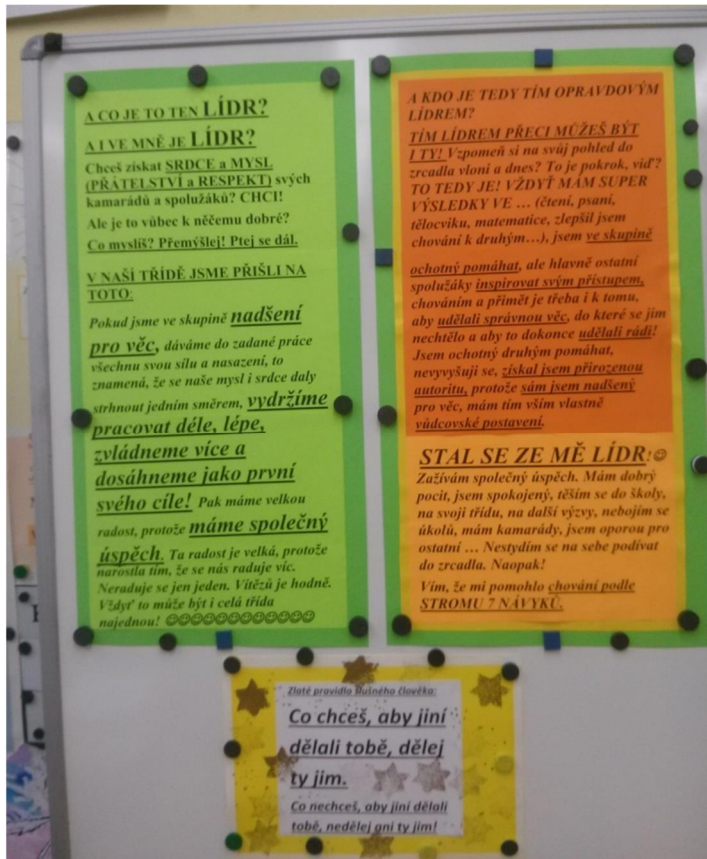 A CO JE TO TEN LÍDR?
A I VE MNĚ JE LÍDR?
Chceš získat SRDCE a MYSL
(PŘÁTELSTVÍ a RESPEKT) svých
kamarádů a spolužáků? CHCI!
Ale je to vůbec k něčemu dobré?
Co myslíš? Přemýšlej! Ptej se dál.
V NAŠÍ TŘÍDĚ JSME PŘIŠLI NA
TOTO:
Pokud jsme ve skupině nadšení
pro věc, dáváme do zadané práce
všechnu svou sílu a nasazení, to
znamená, že se naše mysl i srdce daly
strhnout jedním směrem, vydržíme
pracovat déle, lépe,
zvládneme více a
dosáhneme jako první
svého cíle! Pak máme velkou
radost, protože máme společný
úspěch. Ta radost je velká, protože
narostla tím, že se nás raduje víc.
Neraduje se jen jeden. Vítězů je hodně.
Vždyť to může být i celá třída
najednou! ☺☺☺☺☺☺☺☺☺☺☺☺
A KDO JE TEDY TÍM OPRAVDOVÝM
LÍDREM?
TÍM LÍDREM PŘECI MŮŽEŠ BÝT
I TY! Vzpomeň si na svůj pohled do
zrcadla vloni a dnes? To je pokrok, viď?
TO TEDY JE! VŽDYŤ MÁM SUPER
VÝSLEDKY VE ... (čtení, psaní,
tělocviku, matematice, zlepšil jsem
chování k druhým...), jsem ve skupině
ochotný pomáhat, ale hlavně ostatní
spolužáky inspirovat svým přístupem,
chováním a přimět je třeba i k tomu,
aby udělali správnou věc, do které se jim
nechtělo a aby to dokonce udělali rádi!
Jsem ochotný druhým pomáhat,
nevyvyšuji se, získal jsem přirozenou
autoritu, protože sám jsem nadšený
pro věc, mám tím vším vlastně
vůdcovské postavení.
STAL SE ZE MĚ LÍDR!☺
Zažívám společný úspěch. Mám dobrý
pocit, jsem spokojený, těším se do školy,
na svoji třídu, na další výzvy, nebojím se
úkolů, mám kamarády, jsem oporou pro
ostatní ... Nestydím se na sebe podívat
do zrcadla. Naopak!
Vím, že mi pomohlo chování podle
STROMU 7 NÁVYKŮ.
Zlaté pravidlo slušného člověka:
Co chceš, aby jiní
dělali tobě, dělej
ty jim.
Co nechceš, aby jiní dělali
tobě, nedělej ani ty jim!